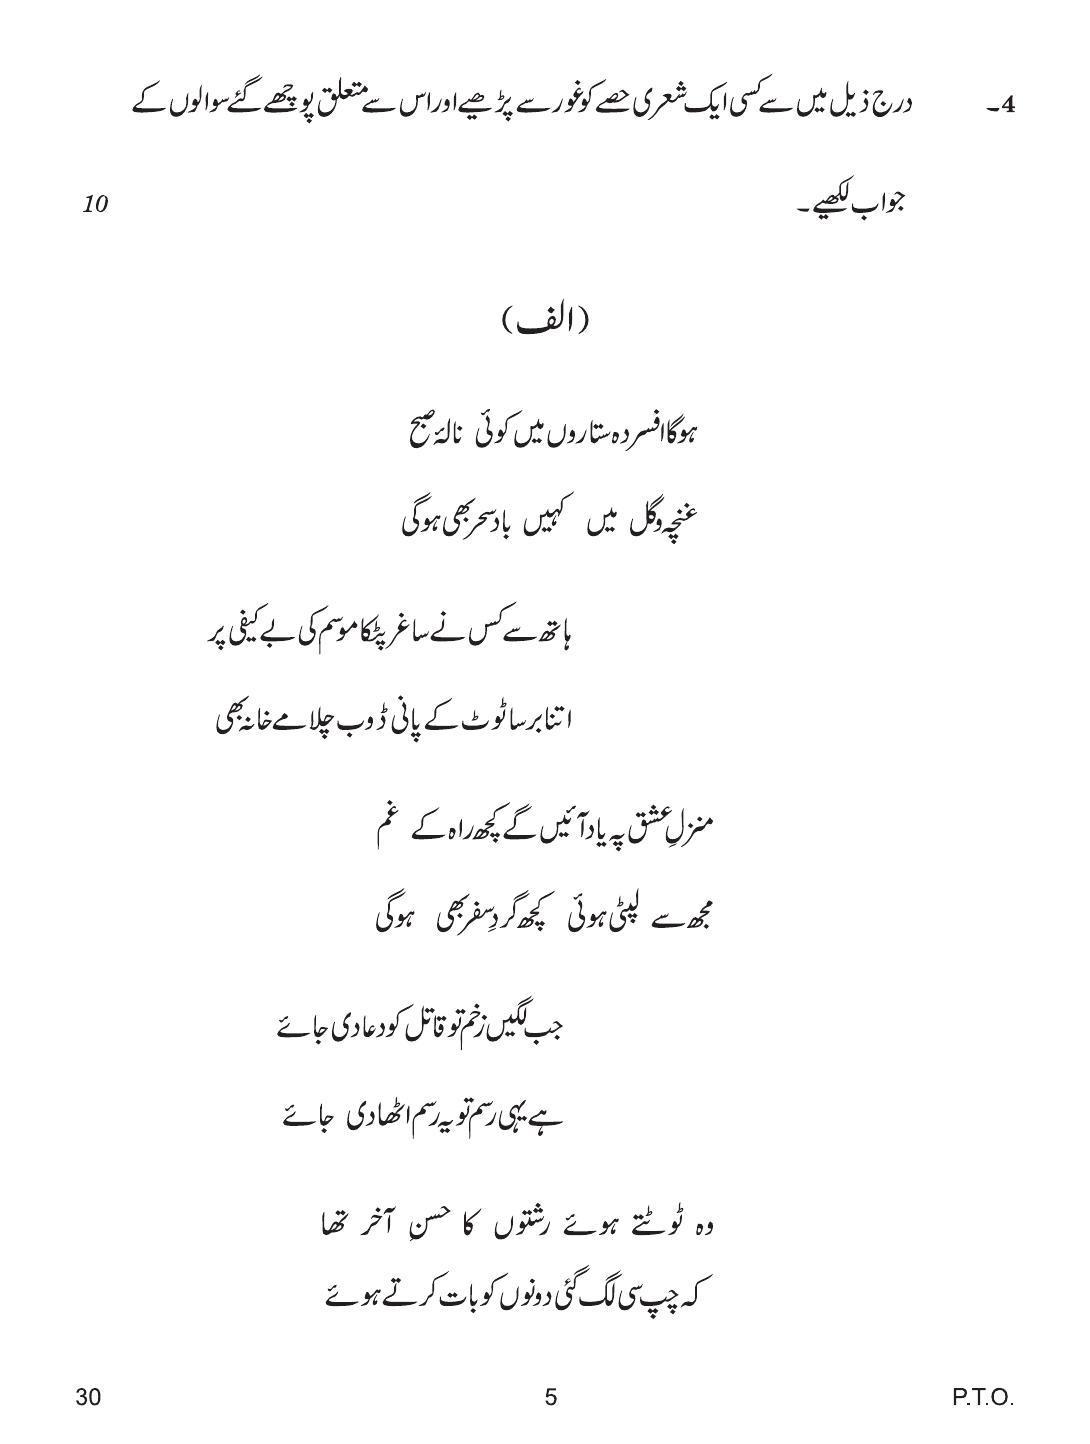 4۔ درج ذیل میں سے کسی ایک شعری حصے کو غور سے پڑھیے اور اس سے متعلق پوچھے گئے سوالوں کے
جواب لکھیے۔ 10
(الف)
ہوگا افسردہ ستاروں میں کوئی نالۂ صبح
غنچہ و گل میں کہیں باد سحر بھی ہوگی
ہاتھ سے کس نے ساغر پٹکا موسم کی بے کیفی پر
اتنا برسا ٹوٹ کے پانی ڈوب چلا مے خانہ بھی
منزلِ عشق پہ یاد آئیں گے کچھ راہ کے غم
مجھ سے لپٹی ہوئی کچھ گردِ سفر بھی ہوگی
جب لگیں زخم تو قاتل کو دعا دی جائے
ہے یہی رسم تو یہ رسم اٹھا دی جائے
وہ ٹوٹتے ہوئے رشتوں کا حسنِ آخر تھا
کہ چپ سی لگ گئی دونوں کو بات کرتے ہوئے
30 5 P.T.O.